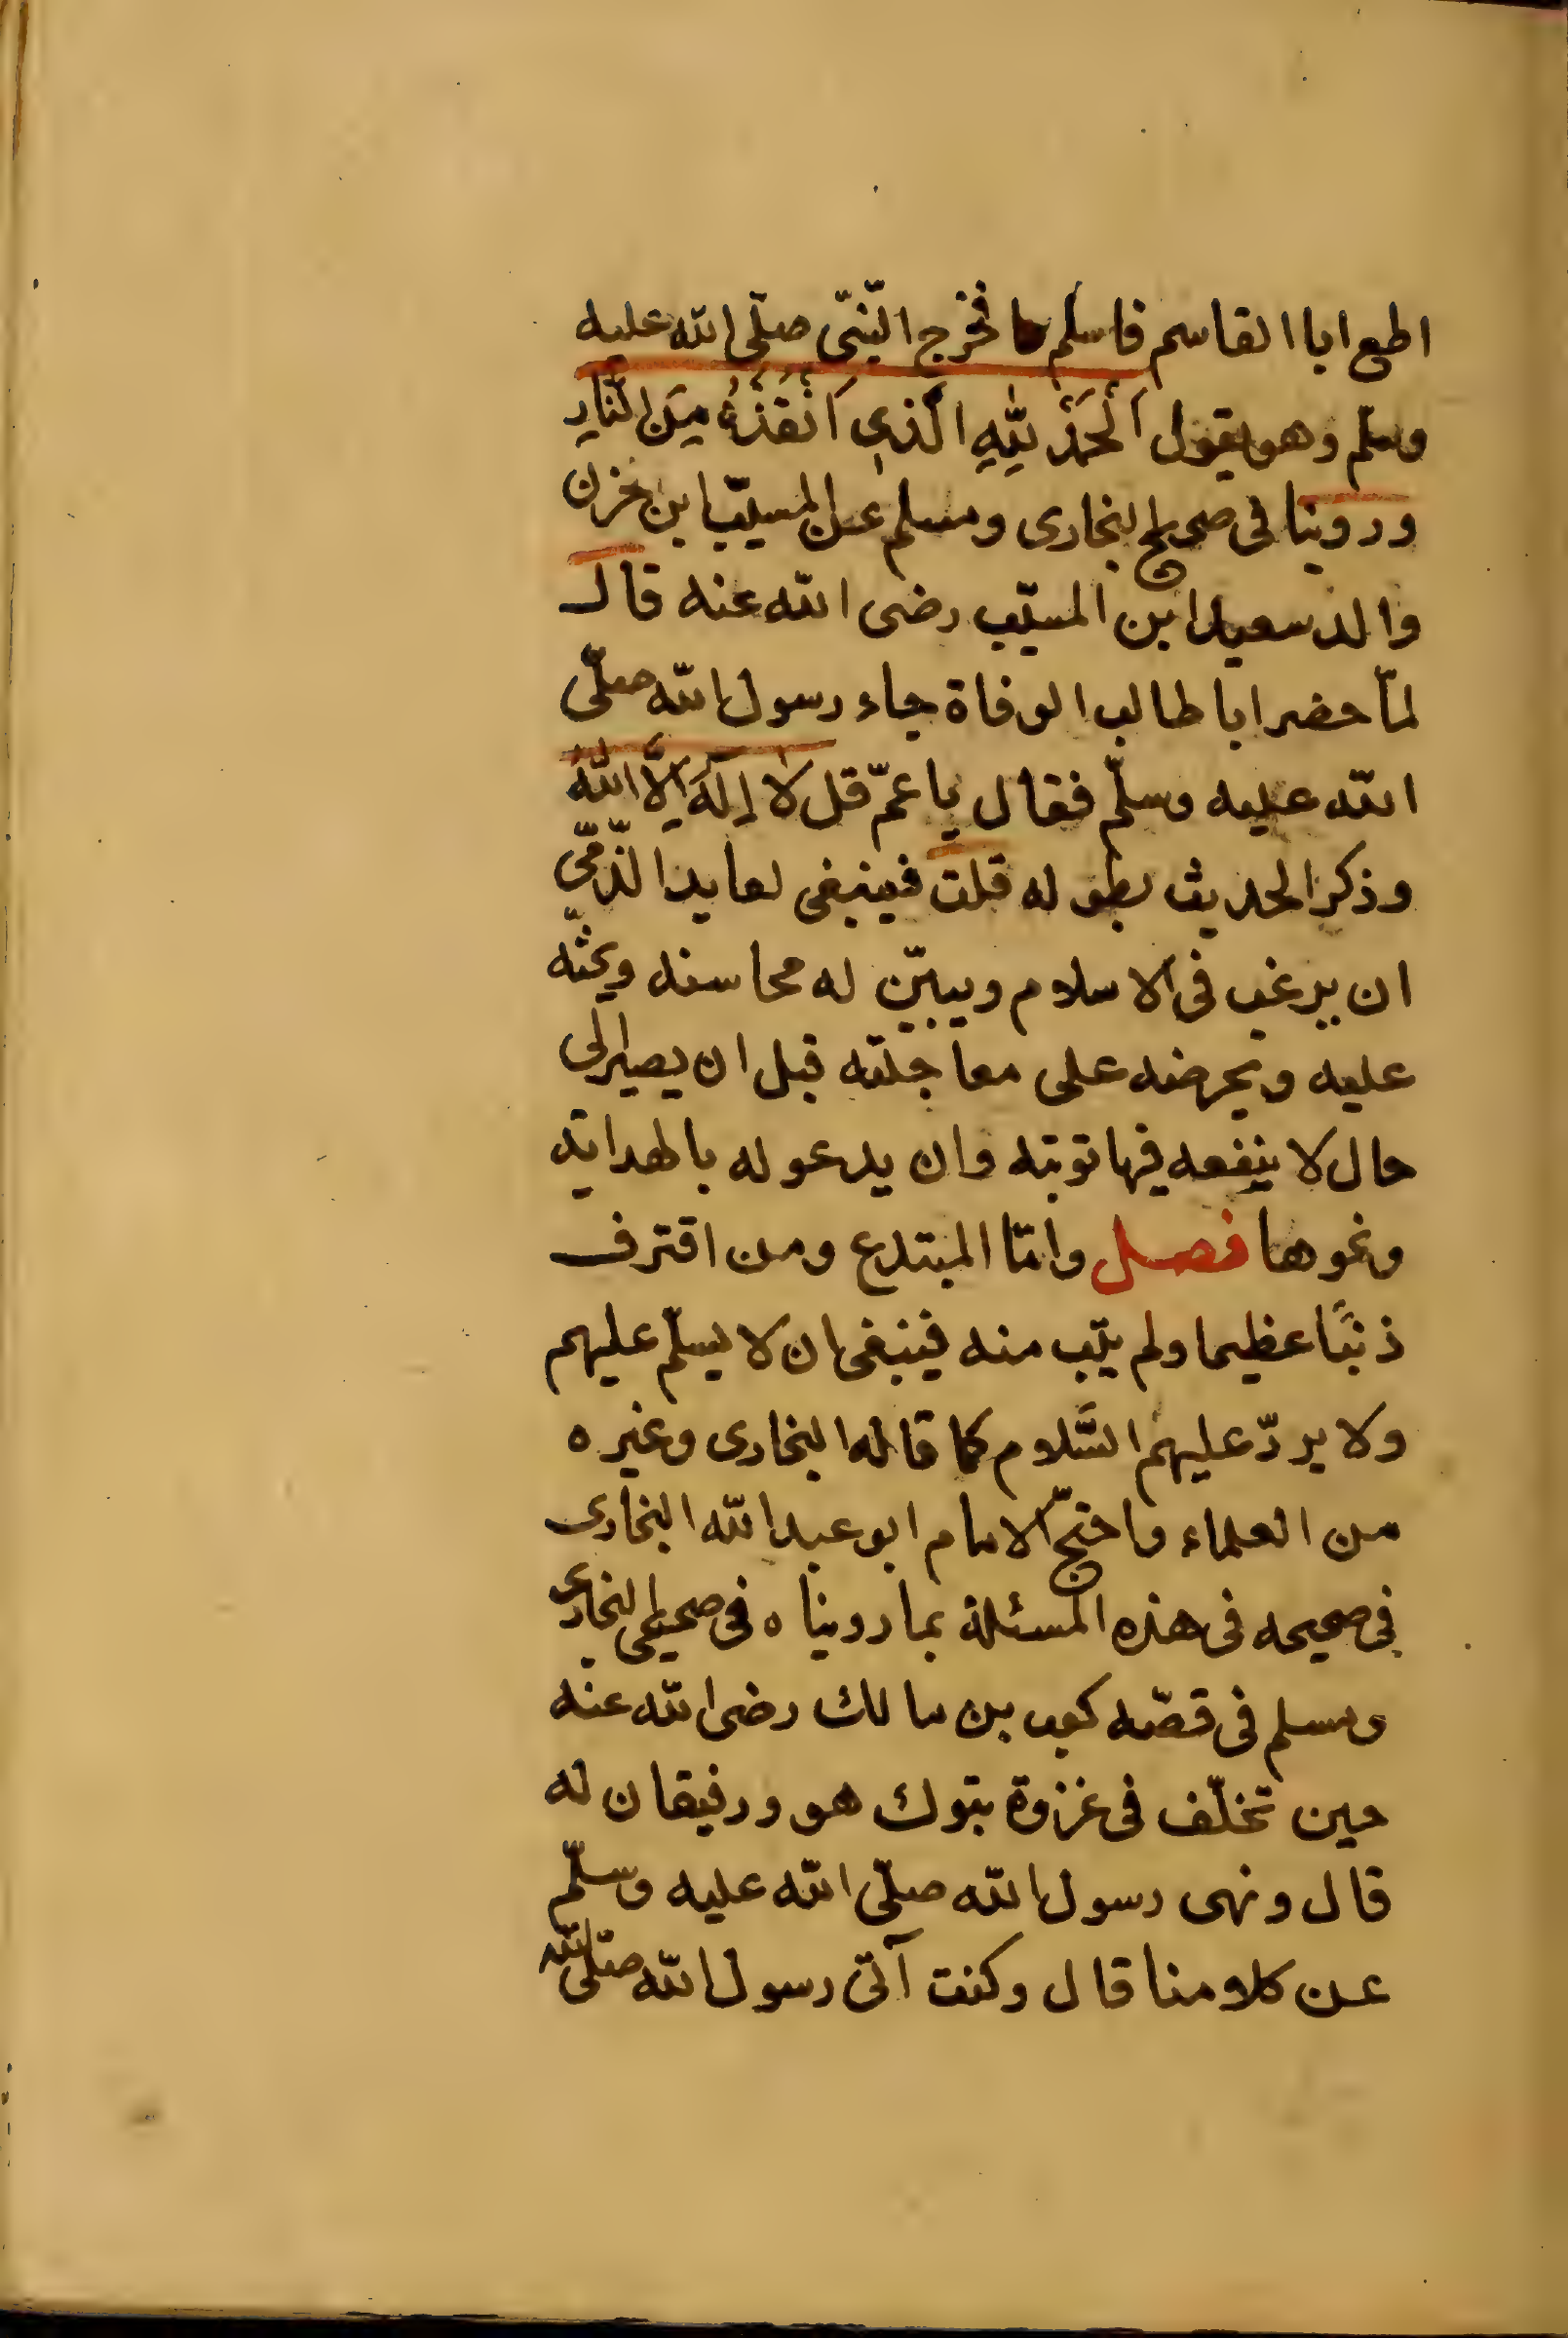 اطع ابا القاسم فاسلم فخرج النّبّى صلّى الله عليه
وسلّم وهو يقول اَلْحَمْدُ لِلّٰهِ الَّذى اَنْقَذَهُ مِنَ النَّارِ
وروينا فى صحيح البخارى ومسلم عن المسيّب ابن حزن
والد سعيد ابن المسيّب رضى الله عنه قال
لمّا حضر ابا طالب الوفاة جاء رسول الله صلّى
الله عليه وسلّم فقال يا عمّ قل لا اِلٰهَ اِلَّا اللّٰهُ
وذكر الحديث بطوله قلت فينبغى لعايد الذّمّى
ان يرغب فى الاسلام ويبيّن له محاسنه ويحثّه
عليه ويحرضه على معاجلته قبل ان يصير الى
حال لا ينفعه فيها توبته وان يدعو له بالهداية
ونحوها فصل وامّا المبتدع ومن اقترف
ذنبًا عظيما ولم يتب منه فينبغى ان لا يسلّم عليهم
ولا يردّ عليهم السَّلام كما قاله البخارى وغيره
من العلماء واحتجّ الامام ابو عبد الله البخارى
فى صحيحه فى هذه المسئلة بما رويناه فى صحيحى البخارى
ومسلم فى قصّه كعب بن مالك رضى الله عنه
حين تخلّف فى غزوة تبوك هو ورفيقان له
قال ونهى رسول الله صلّى الله عليه وسلّم
عن كلامنا قال وكنت آتى رسول الله صلّى الله